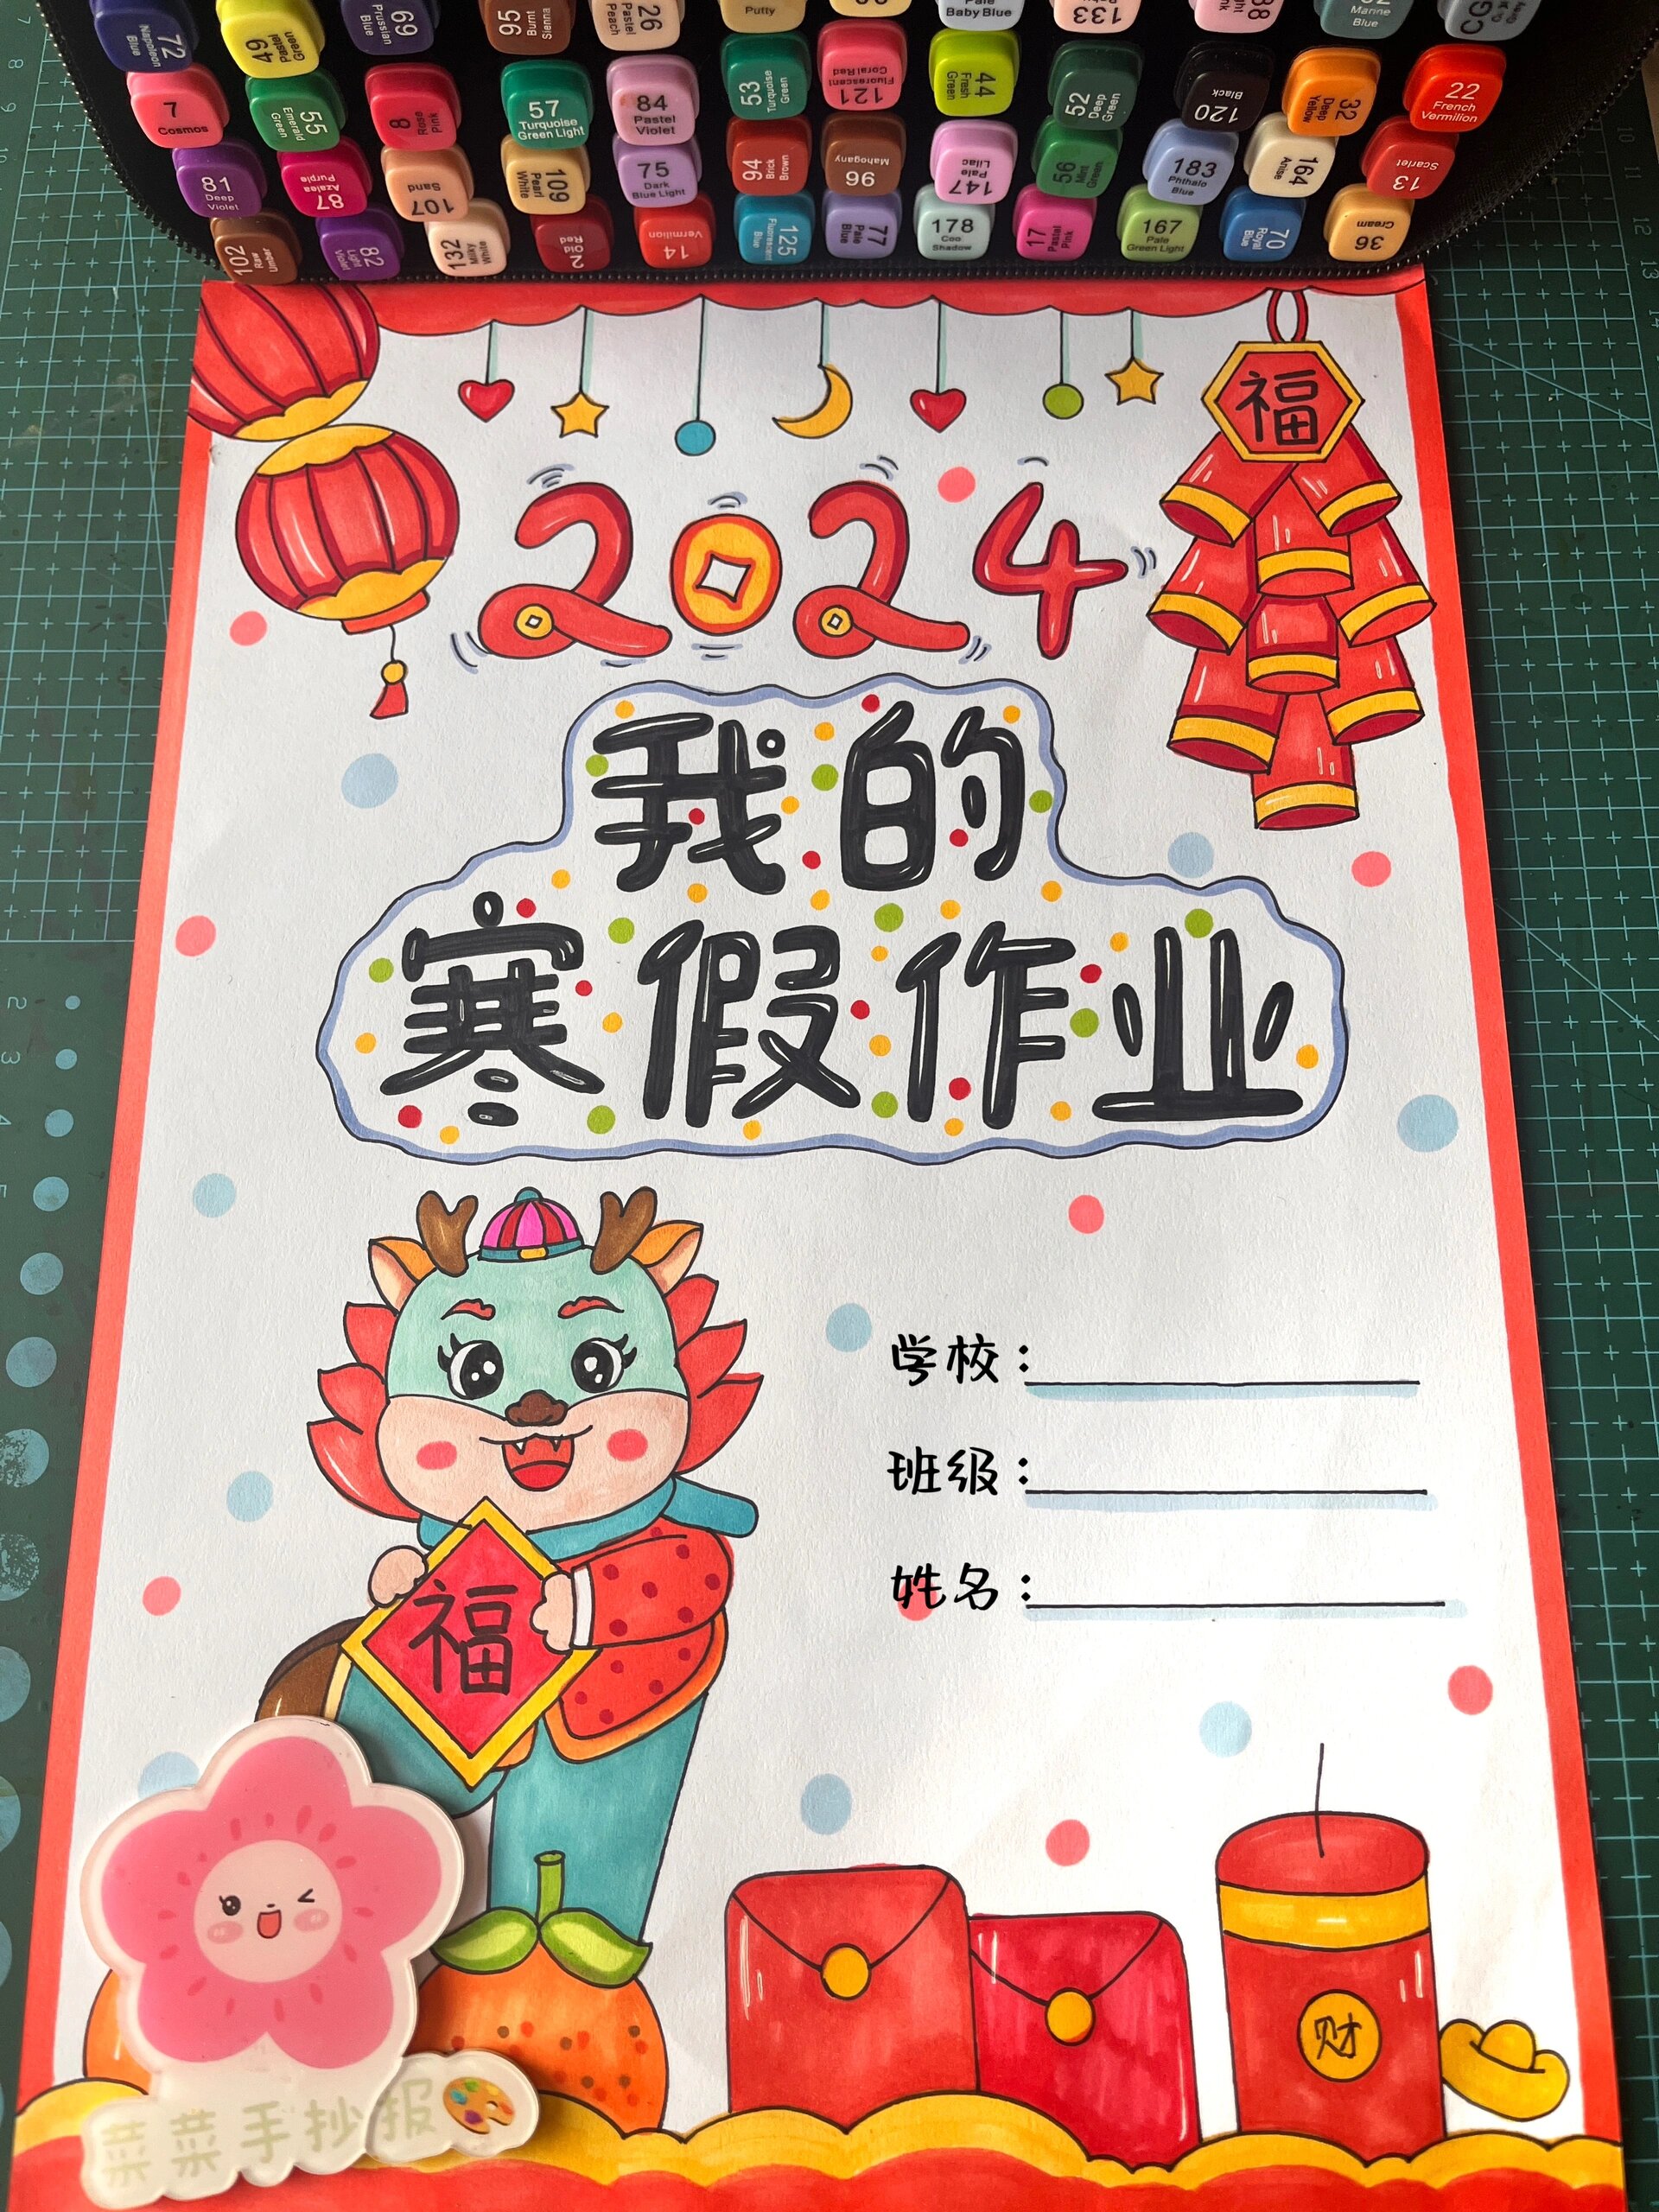 72 Napoleon Blue
49 Pastel Yellow
69 Prussian Blue
95 Burnt Sienna
126 Pastel Peach
Putty
Pale Baby Blue
133
Marine Blue
7 Cosmos
55 Emerald Green
8 Rose Pink
57 Turquoise Green Light
84 Pastel Violet
53 Turquoise Green
121 Fluorescent Coral Red
44 Fresh Green
52 Deep Green
120 Black
32 Deep Yellow
22 French Vermilion
81 Deep Violet
87 Azalea Purple
107 Sand
109 Pearl White
75 Dark Blue Light
94 Brick Brown
96 Mahogany
147 Pale Lilac
56 Mint Green
183 Phthalo Blue
164 Anise
13 Scarlet
102 Raw Umber
82 Light Violet
132 Milky White
2 Old Red
14 Vermilion
125 Fluorescent Blue
77 Pale Blue
178 Coo Shadow
17 Pastal Pink
167 Pale Green Light
70 Royal Blue
36 Cream
福
2024
我的
寒假作业
学校：
班级：
姓名：
福
财
菜菜手抄报